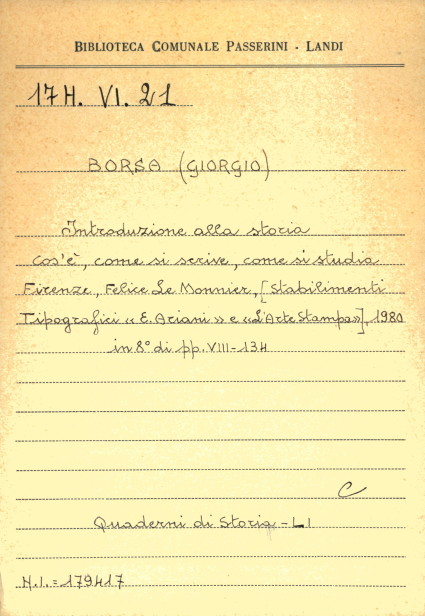 BIBLIOTECA COMUNALE PASSERINI - LANDI
17 H. VI. 21
BORSA (GIORGIO)
Introduzione alla storia
cos'è, come si scrive, come si studia
Firenze, Felice Le Monnier, [Stabilimenti
Tipografici « E. Ariani » e « L'Arte Stampa»], 1980
in 8° di pp. VIII-134
C
Quaderni di Storia - LI
N.I. = 179417